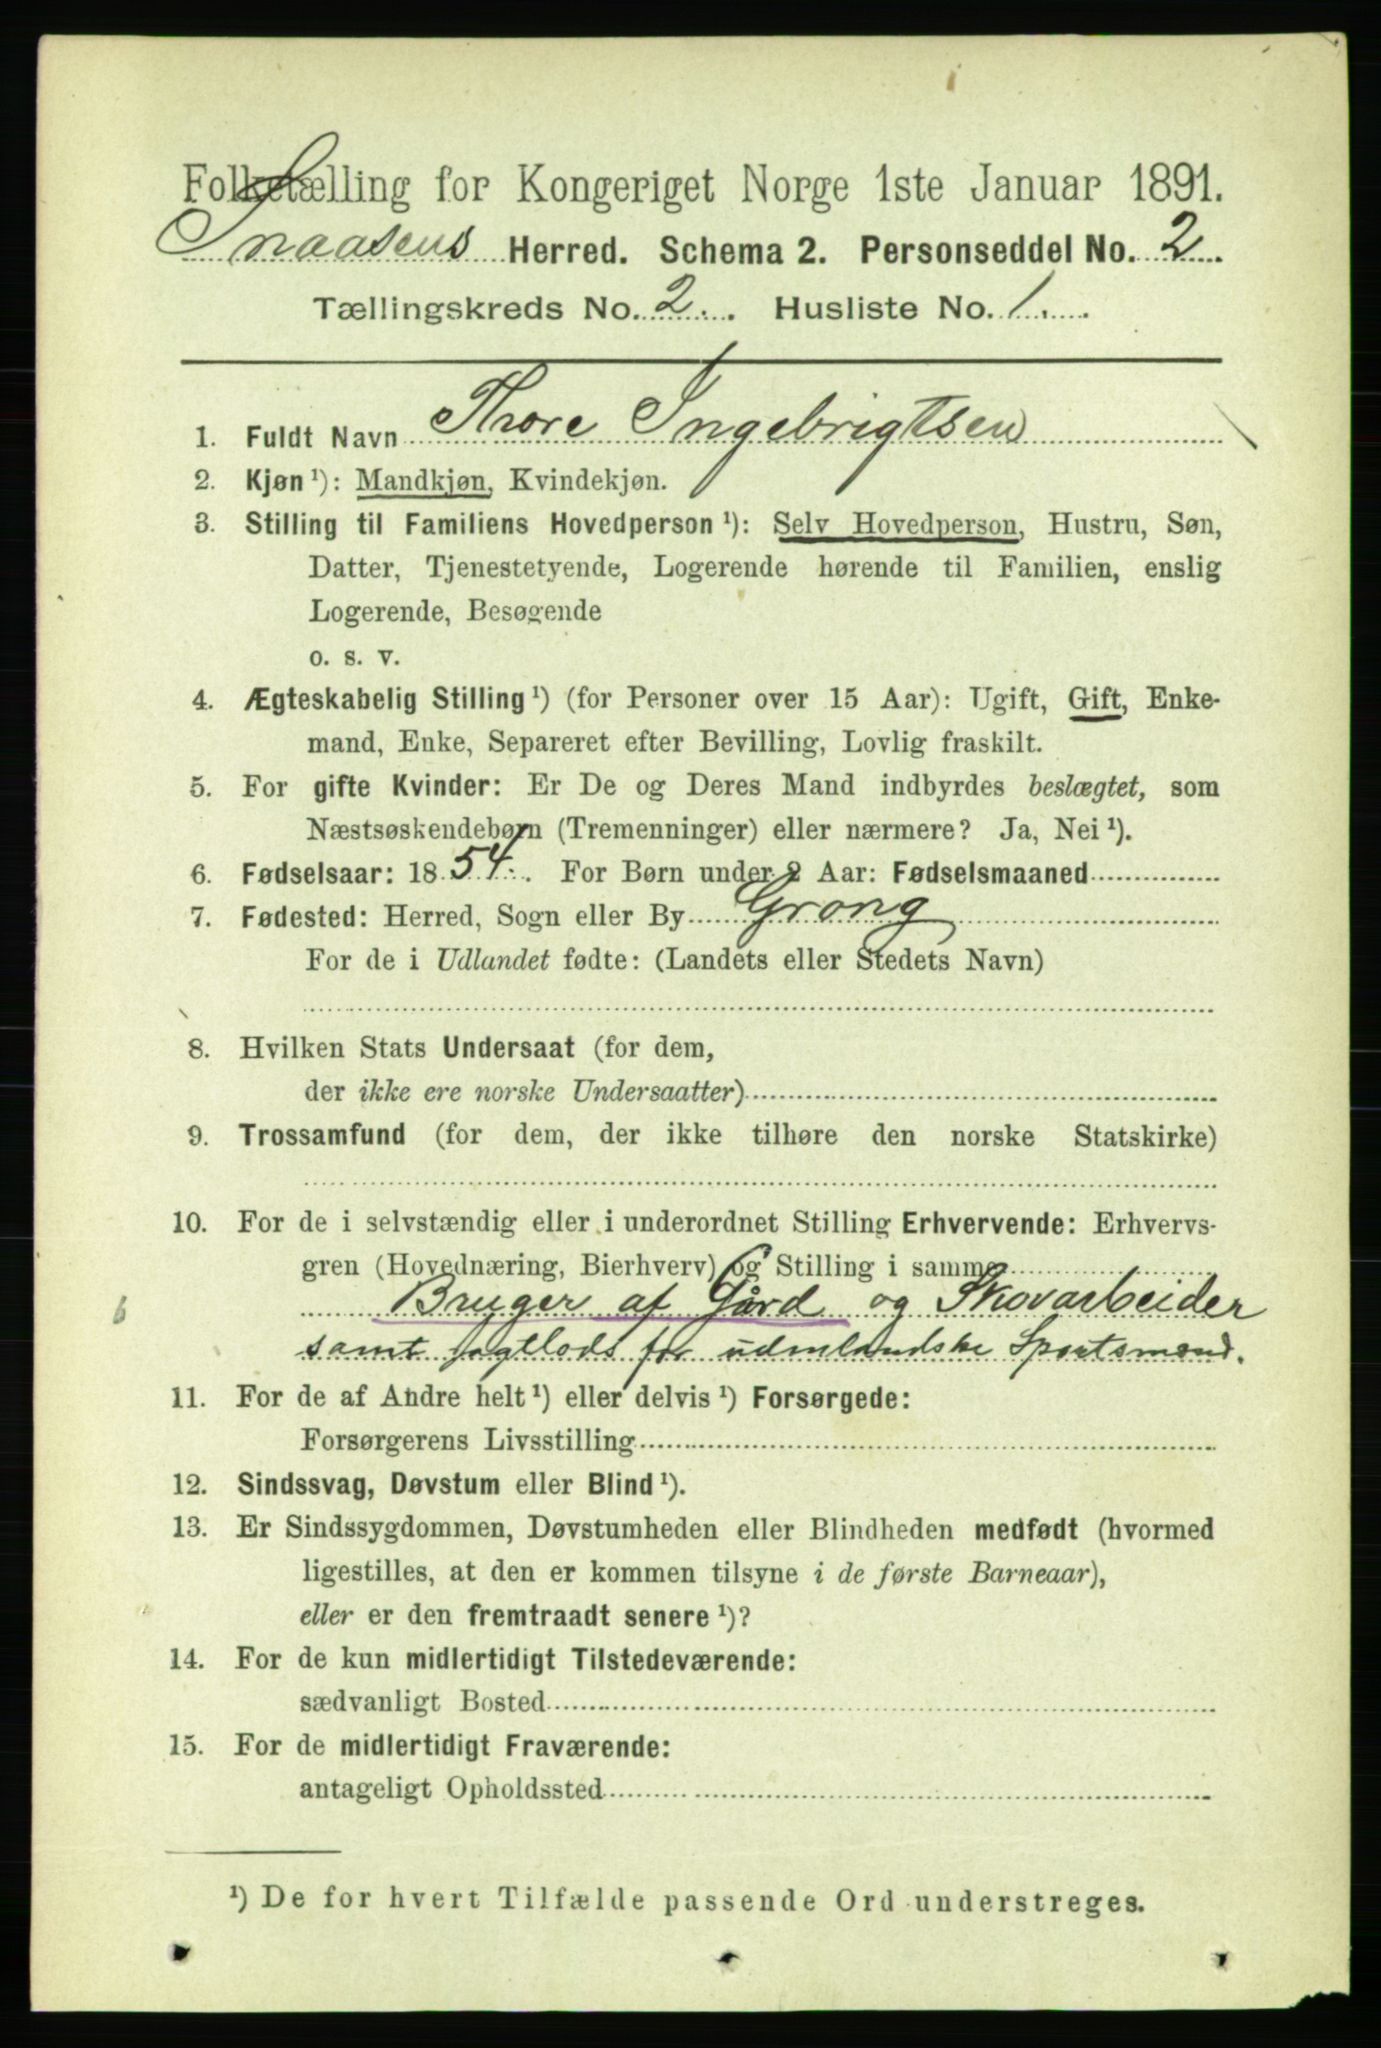 Folketælling for Kongeriget Norge 1ste Januar 1891.
Snaasens Herred. Schema 2. Personseddel No. 2
Tællingskreds No. 2. Husliste No. 1.
1. Fuldt Navn Thore Ingebrigtsen
2. Kjøn ¹): Mandkjøn, Kvindekjøn.
3. Stilling til Familiens Hovedperson ¹): Selv Hovedperson, Hustru, Søn,
Datter, Tjenestetyende, Logerende hørende til Familien, enslig
Logerende, Besøgende
o. s. v.
4. Ægteskabelig Stilling ¹) (for Personer over 15 Aar): Ugift, Gift, Enke-
mand, Enke, Separeret efter Bevilling, Lovlig fraskilt.
5. For gifte Kvinder: Er De og Deres Mand indbyrdes beslægtet, som
Næstsøskendebørn (Tremenninger) eller nærmere? Ja, Nei ¹).
6. Fødselsaar: 1854. For Børn under 2 Aar: Fødselsmaaned
7. Fødested: Herred, Sogn eller By Grong
For de i Udlandet fødte: (Landets eller Stedets Navn)
8. Hvilken Stats Undersaat (for dem,
der ikke ere norske Undersaatter)
9. Trossamfund (for dem, der ikke tilhøre den norske Statskirke)
10. For de i selvstændig eller i underordnet Stilling Erhvervende: Erhvervs-
gren (Hovednæring, Bierhverv) og Stilling i samme
6 Bruger af Gård og Skovarbeider
samt jagtlods for udenlandske Sportsmænd.
11. For de af Andre helt ¹) eller delvis ¹) Forsørgede:
Forsørgerens Livsstilling
12. Sindssvag, Døvstum eller Blind ¹).
13. Er Sindssygdommen, Døvstumheden eller Blindheden medfødt (hvormed
ligestilles, at den er kommen tilsyne i de første Barneaar),
eller er den fremtraadt senere ¹)?
14. For de kun midlertidigt Tilstedeværende:
sædvanligt Bosted
15. For de midlertidigt Fraværende:
antageligt Opholdssted
¹) De for hvert Tilfælde passende Ord understreges.